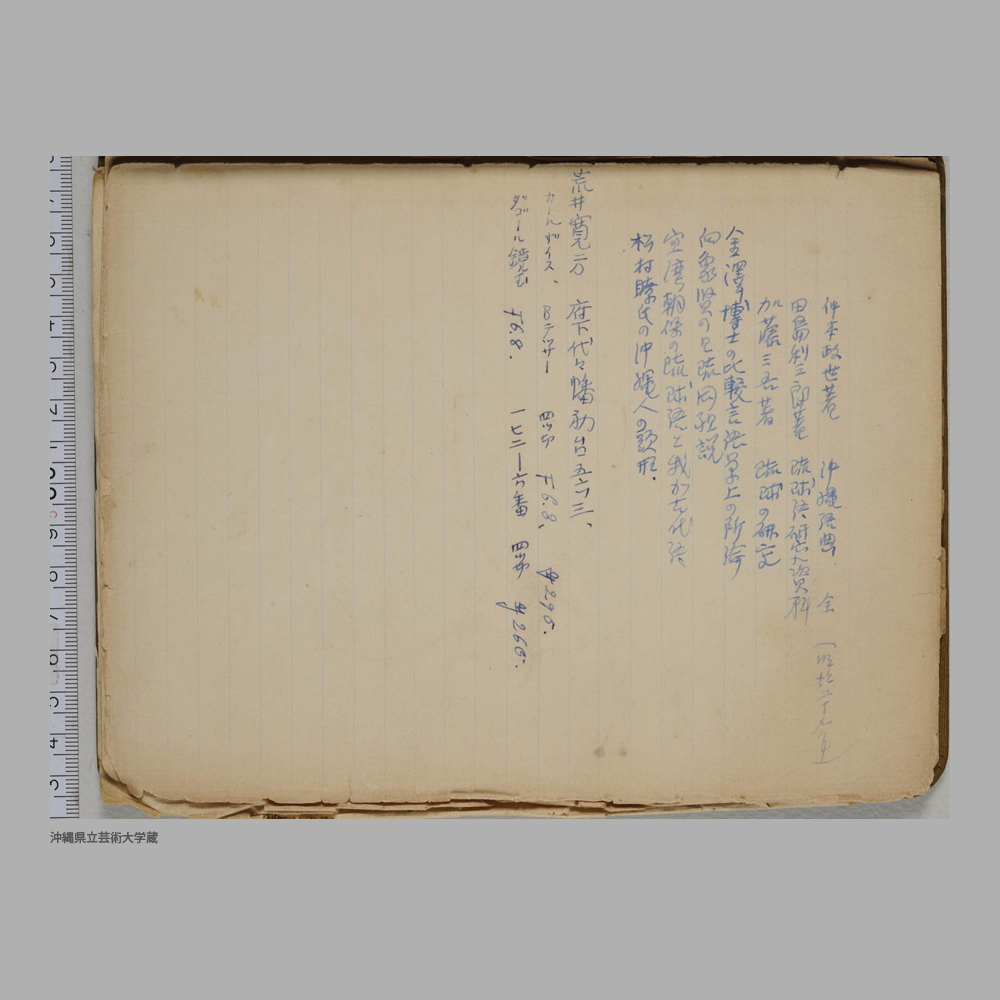 仲本政世著 沖縄語典 全 (明治二十九年)
田島利三郎著 琉球語研究資料
加藤三吾著 琉球の研究
金澤博士の比較言語学上の所論
向象賢の日琉同祖説
宜湾朝保の琉球語と我が古代語
松村瞭氏の沖縄人の頭形.
荒井寛方 府下代々幡 五六三、
カールツァイス、 Bテッサー 四吋 F6.8. ¥290.
ダゴール鏡玉 F6.8. 一七二一六番 四吋 ¥260.
沖縄県立芸術大学蔵